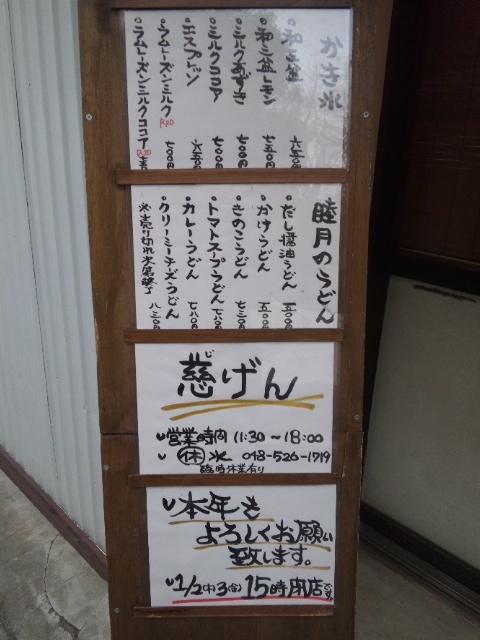 かき氷
和三盆 六五0円
和三盆レモン 七五0円
ミルクあずき 七00円
ミルクココア 七00円
エスプレッソ 六五0円
ラムレーズンミルク R20 七00円
ラムレーズンミルクココア R20
睦月のうどん
だし醤油うどん 五00円
かけうどん 五00円
きのこうどん 七三0円
トマトスープうどん 七八0円
カレーうどん 七八0円
クリーミーチーズうどん 八三0円
※売り切れ次第終了
じ
慈げん
営業時間 11:30〜18:00
㊡ 水 048-526-1719
臨時休業有り
本年も
よろしくお願い
致します。
1/2(木)3(金)15時閉店です。